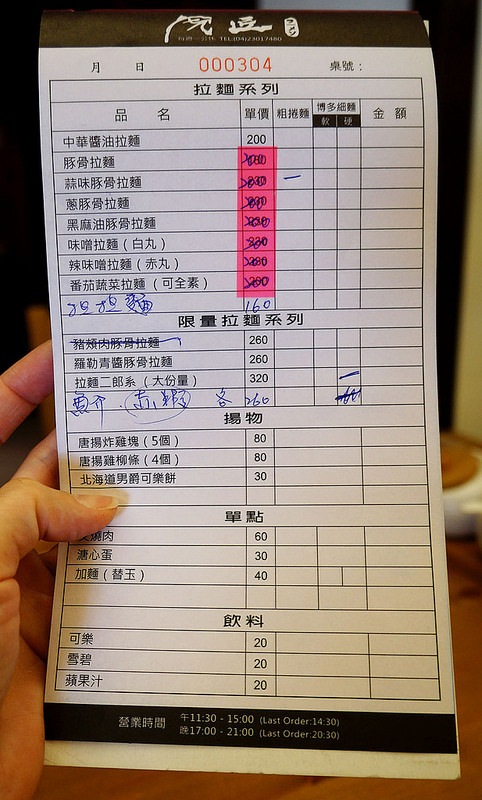 每週一公休 TEL:(04)23017480
月 日 000304 桌號：
拉麵系列
品 名 單價 粗捲麵 博多細麵 軟 硬 金 額
中華醬油拉麵 200
豚骨拉麵
蒜味豚骨拉麵
蔥豚骨拉麵
黑麻油豚骨拉麵
味噌拉麵（白丸）
辣味噌拉麵（赤丸）
番茄蔬菜拉麵（可全素）
担担麵 160
限量拉麵系列
豬頰肉豚骨拉麵 260
羅勒青醬豚骨拉麵 260
拉麵二郎系（大份量） 320
魚介．赤蝦 各 260
揚物
唐揚炸雞塊（5個） 80
唐揚雞柳條（4個） 80
北海道男爵可樂餅 30
單點
燒肉 60
溏心蛋 30
加麵（替玉） 40
飲料
可樂 20
雪碧 20
蘋果汁 20
營業時間 午11:30 - 15:00 (Last Order:14:30)
晚17:00 - 21:00 (Last Order:20:30)